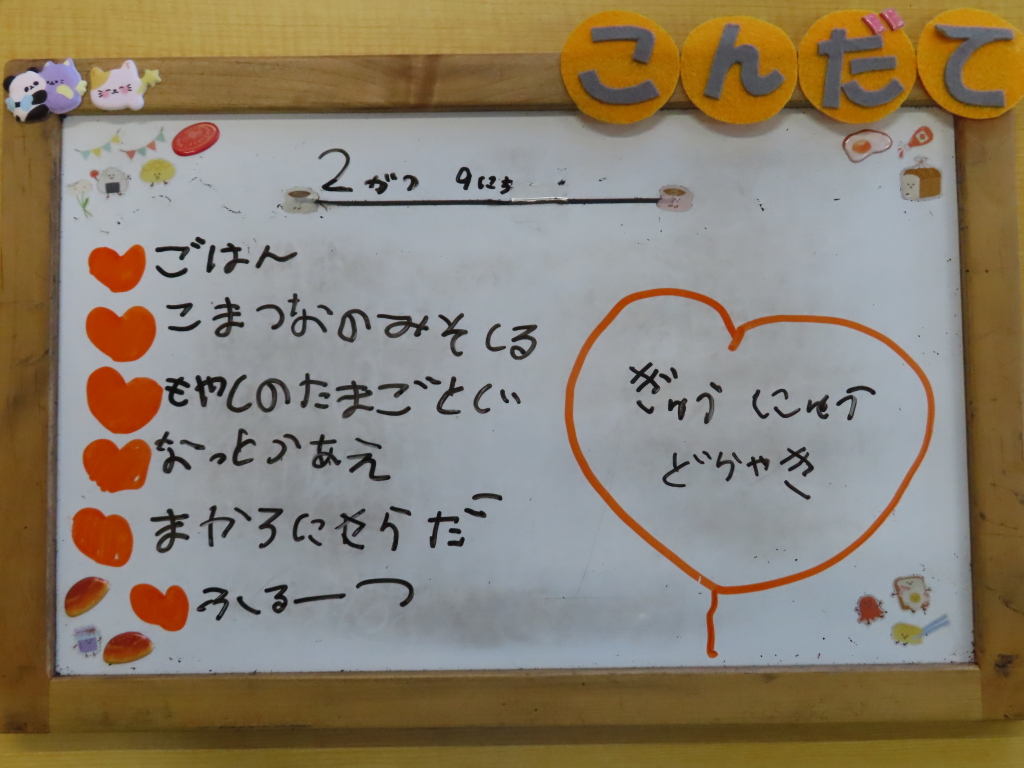 こんだて
2がつ 9にち
ごはん
こまつなのみそしる
もやしのたまごとじ
なっとうあえ
まかろにさらだ
ふるーつ
ぎゅうにゅう
どらやき